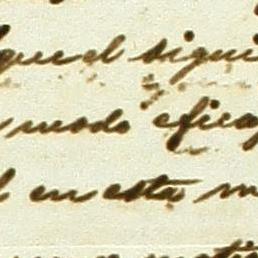 que el sigui
modo efica
en esta m